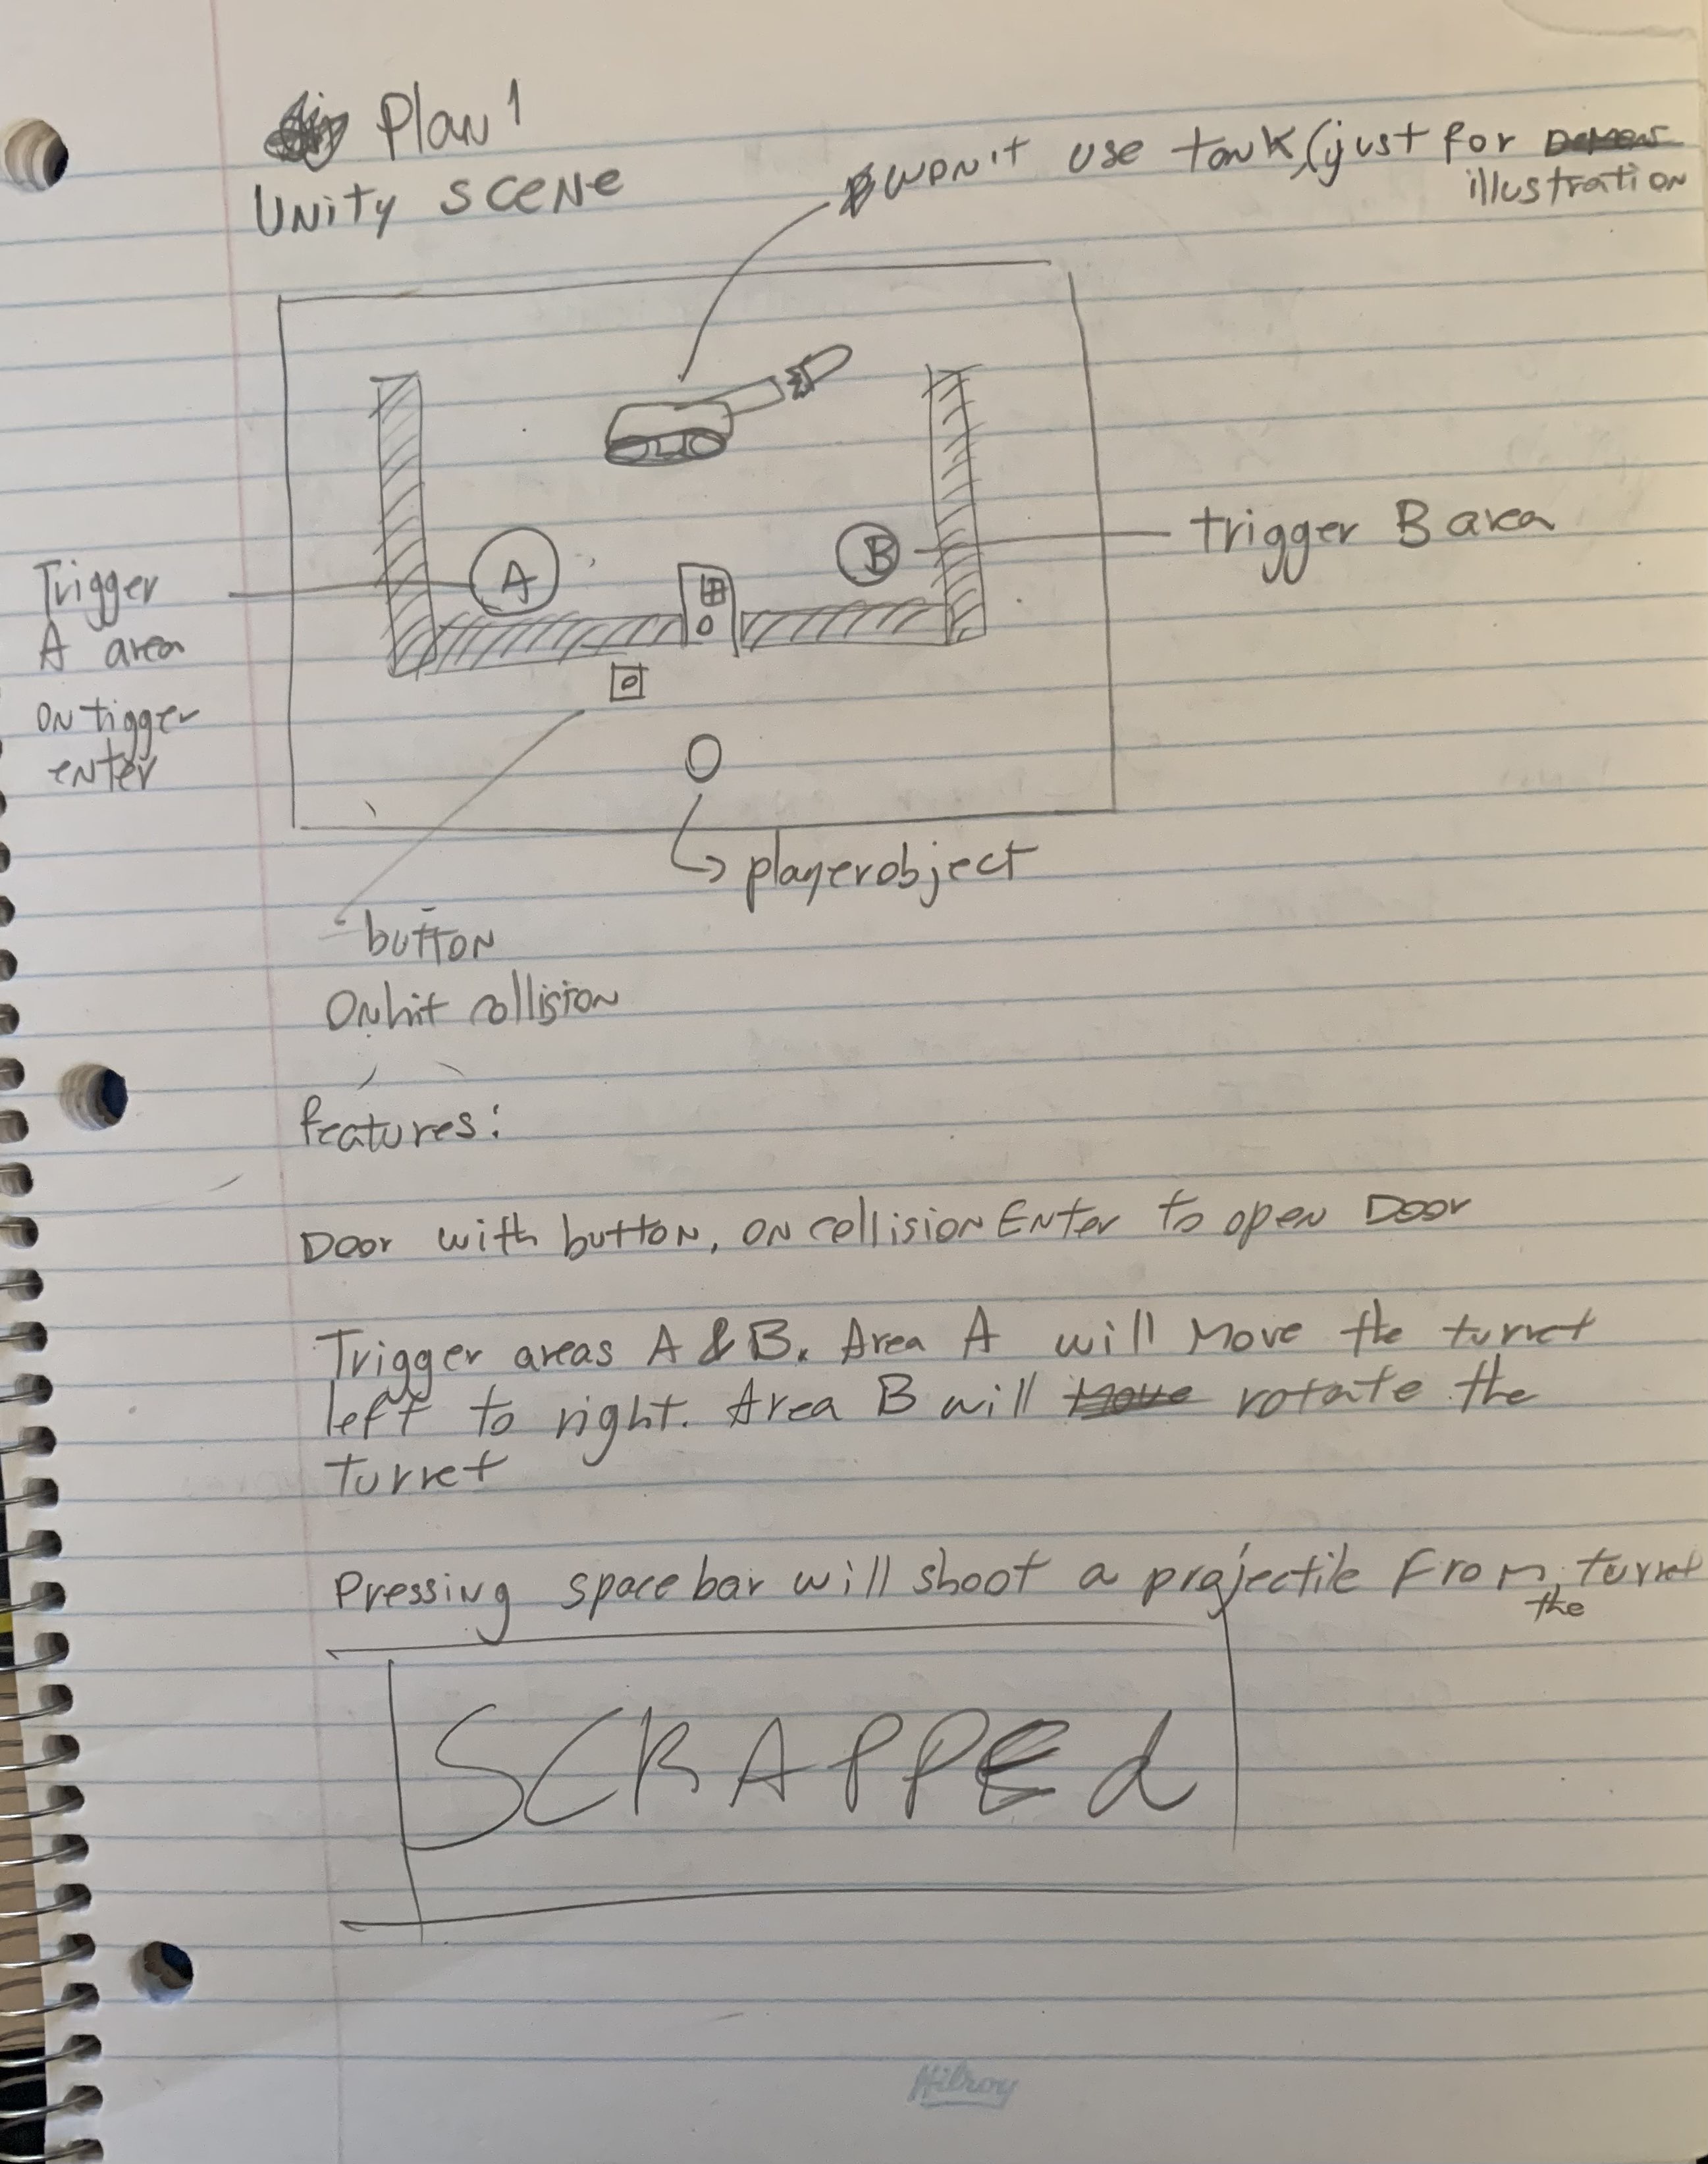 Plan 1
Unity scene
won't use tank, (just for
illustration
A
B
trigger B area
Trigger
A area
on tigger
enter
playerobject
button
Onhit collision
features:
Door with button, on collision Enter to open Door
Trigger areas A & B. Area A will Move the turret
left to right. Area B will Move rotate the
turret
Pressing space bar will shoot a projectile From turret
the
SCRAPPEd
Hilroy